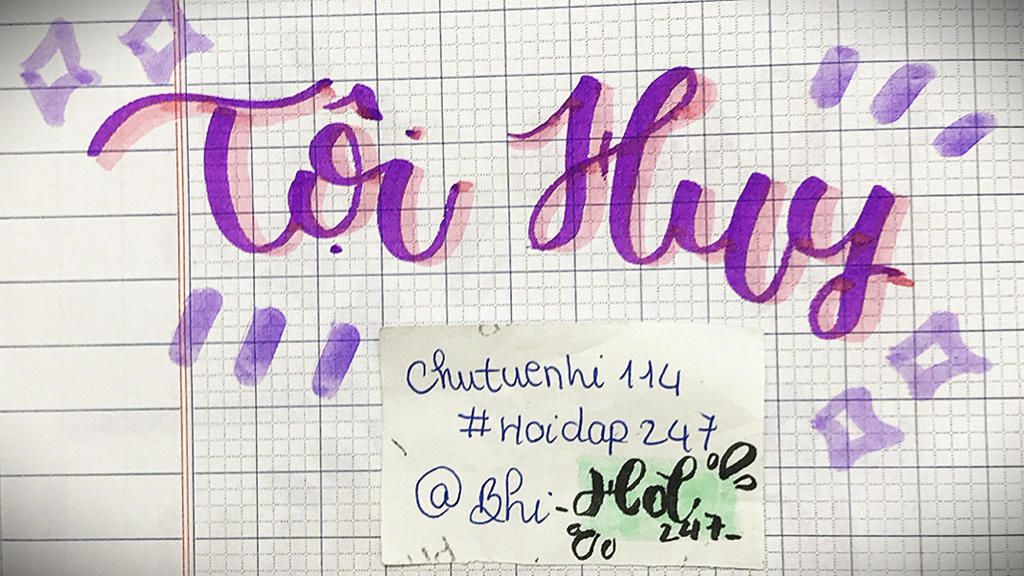 Tội Huy
chutuenhi 114
#Hoidap247
@Bhi-
247-